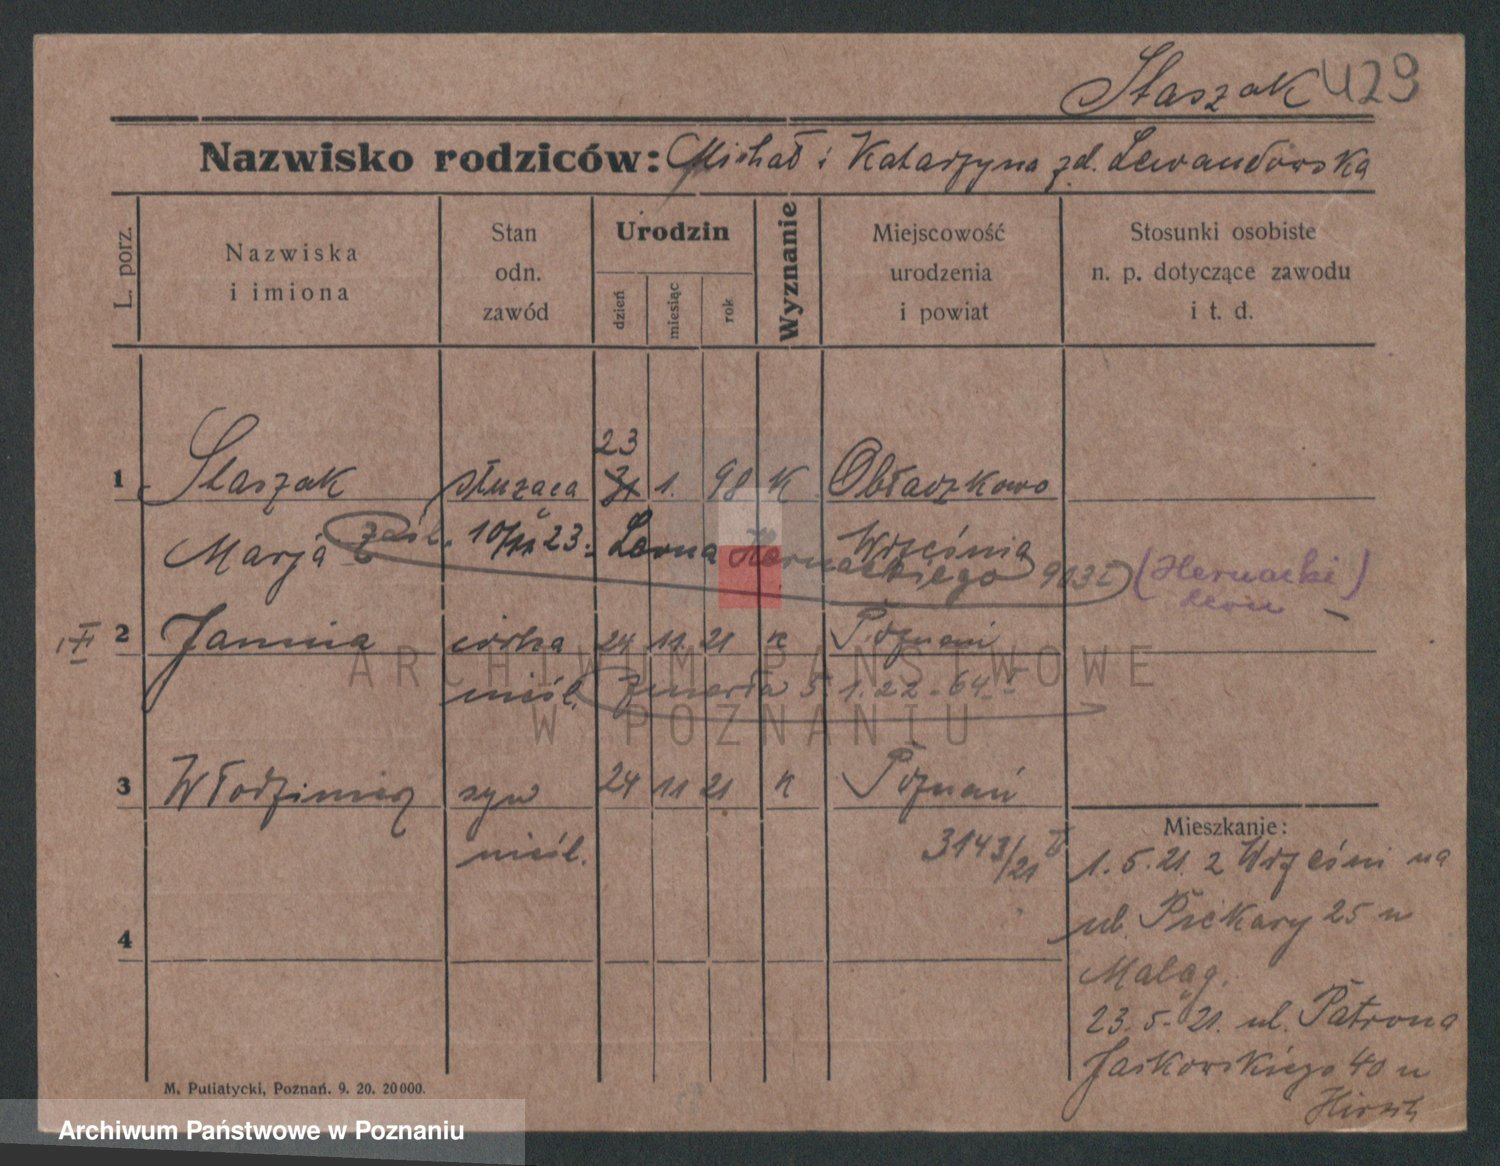 Staszak 429
Nazwisko rodziców: Michał i Katarzyna zd. Lewandowska
L. porz.
Nazwiska
i imiona
Stan
odn.
zawód
Urodzin
dzień
miesiąc
rok
Wyznanie
Miejscowość
urodzenia
i powiat
Stosunki osobiste
n. p. dotyczące zawodu
i t. d.
23
1 Staszak służąca 31 1. 98 K Obłaczkowo
Września
Marja zaśl. 10/11 23. Leona Hernackiego 913 I (Hernacki)
Leon
2 Janina córka 24 11. 21 K Poznań
nieśl. Zmarła 5 1. 22 - 64 I
3 Włodzimierz syn 24 11 21 K Poznań
nieśl. 3143/21
4
Mieszkanie:
1. 5. 21. z Wrześni na
ul. Piekary 25 u
Maląg.
23. 5. 21. ul. Patrona
Jackowskiego 40 u
Hirsch
M. Putiatycki, Poznań. 9. 20. 20000.
ARCHIWUM PAŃSTWOWE
W POZNANIU
Archiwum Państwowe w Poznaniu